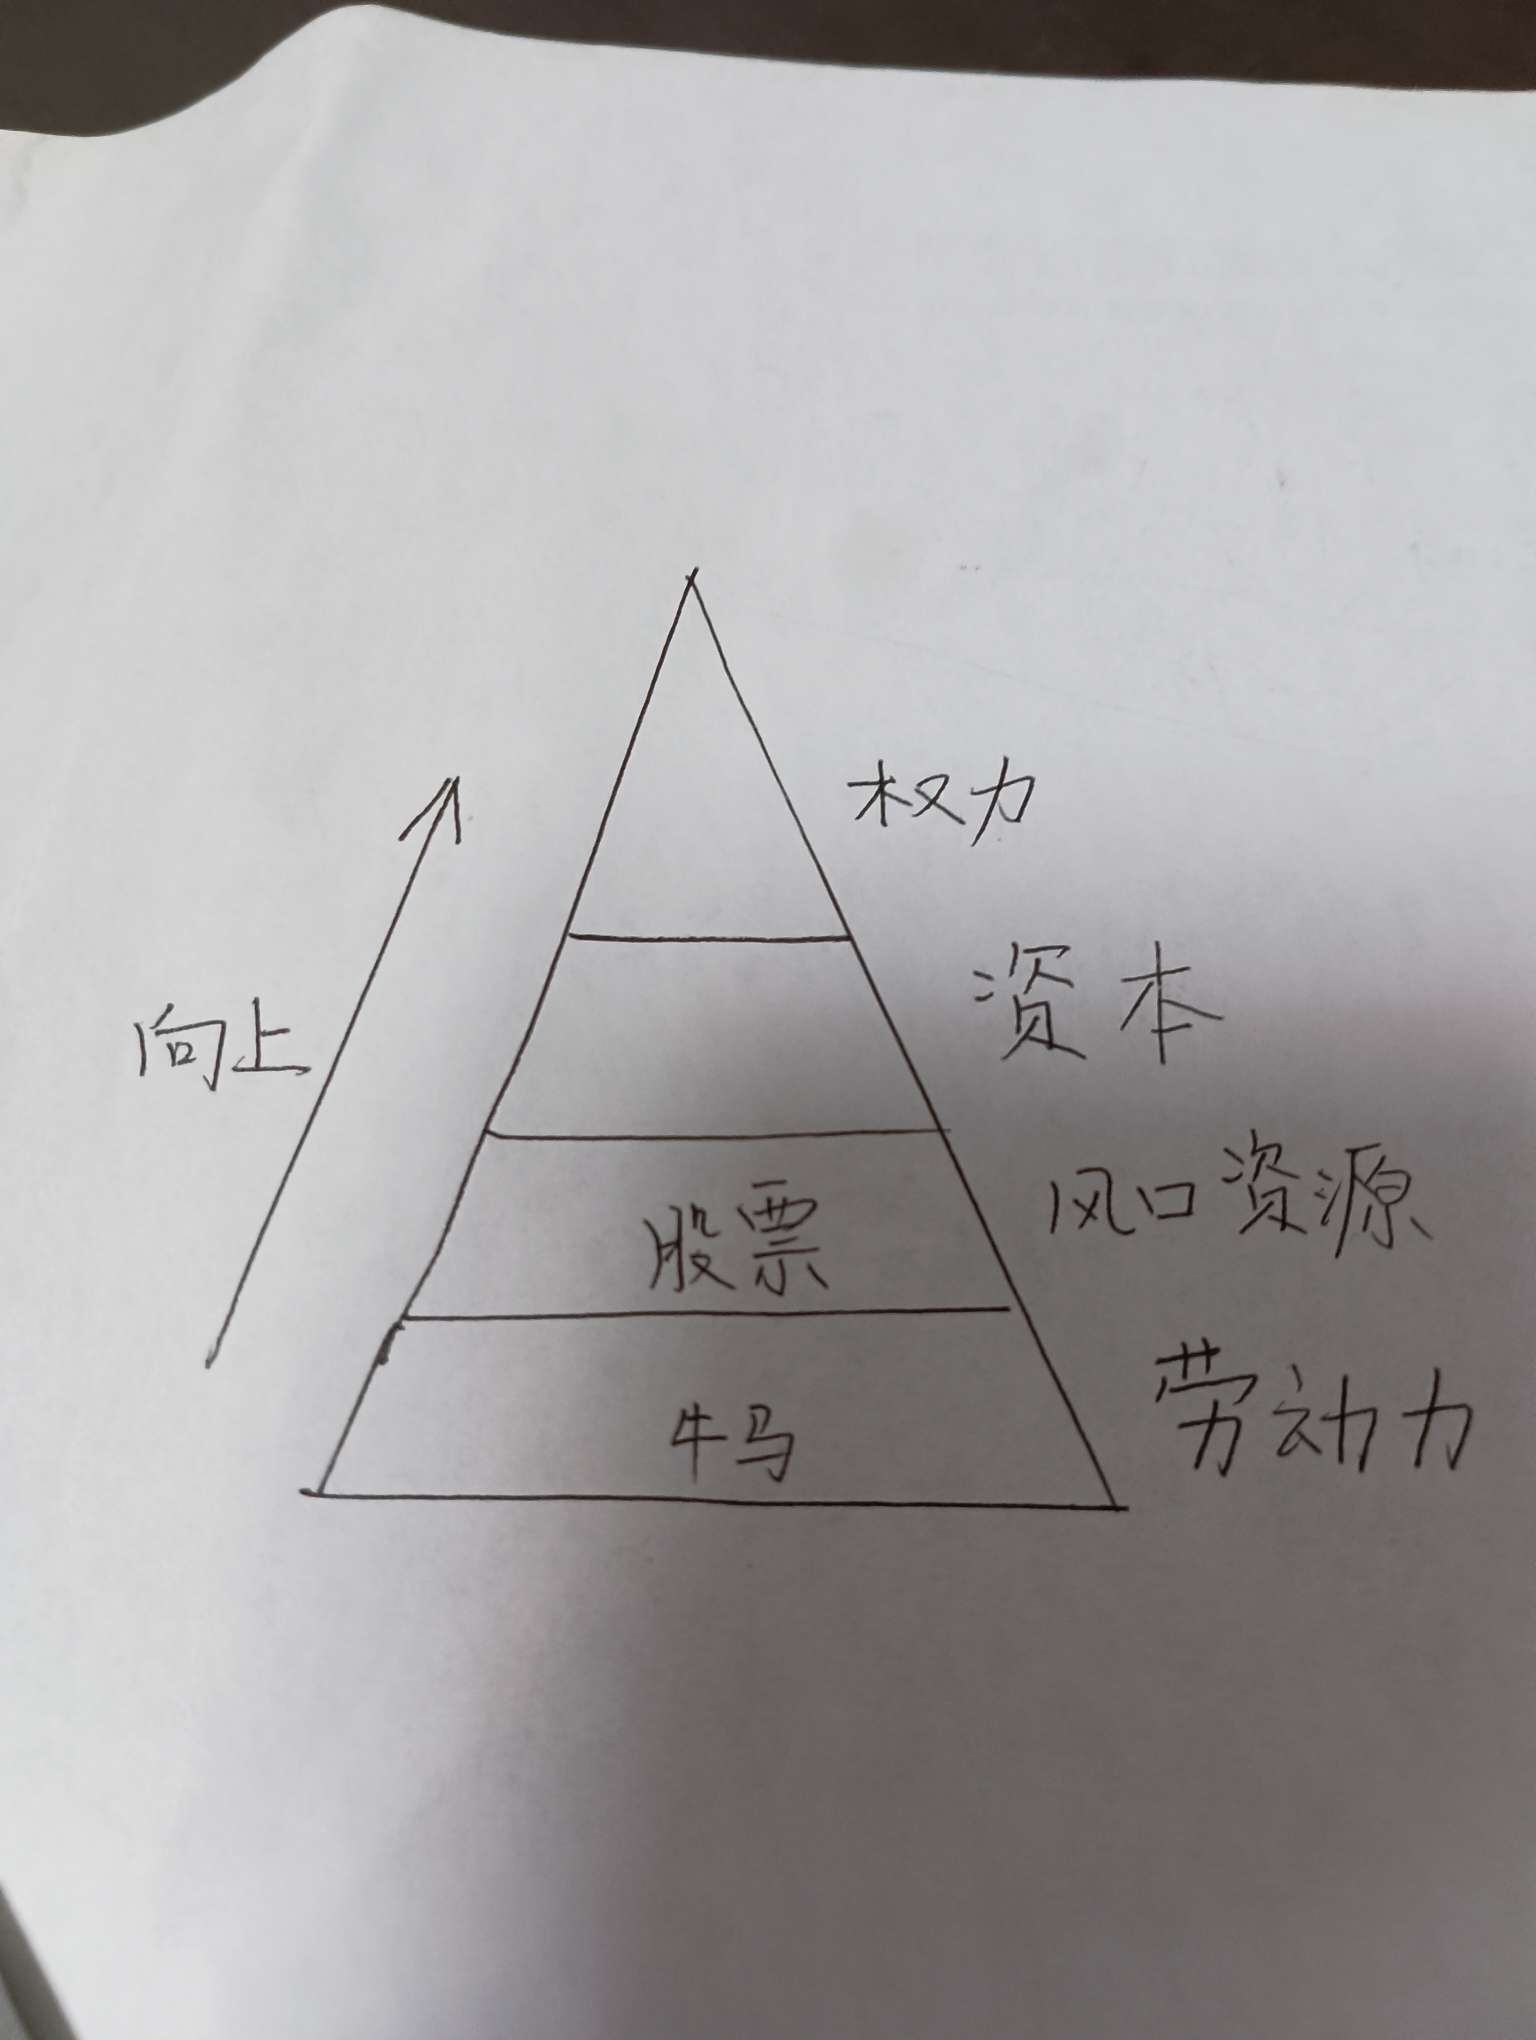 权力
资本
向上
风口资源
股票
劳动力
牛马